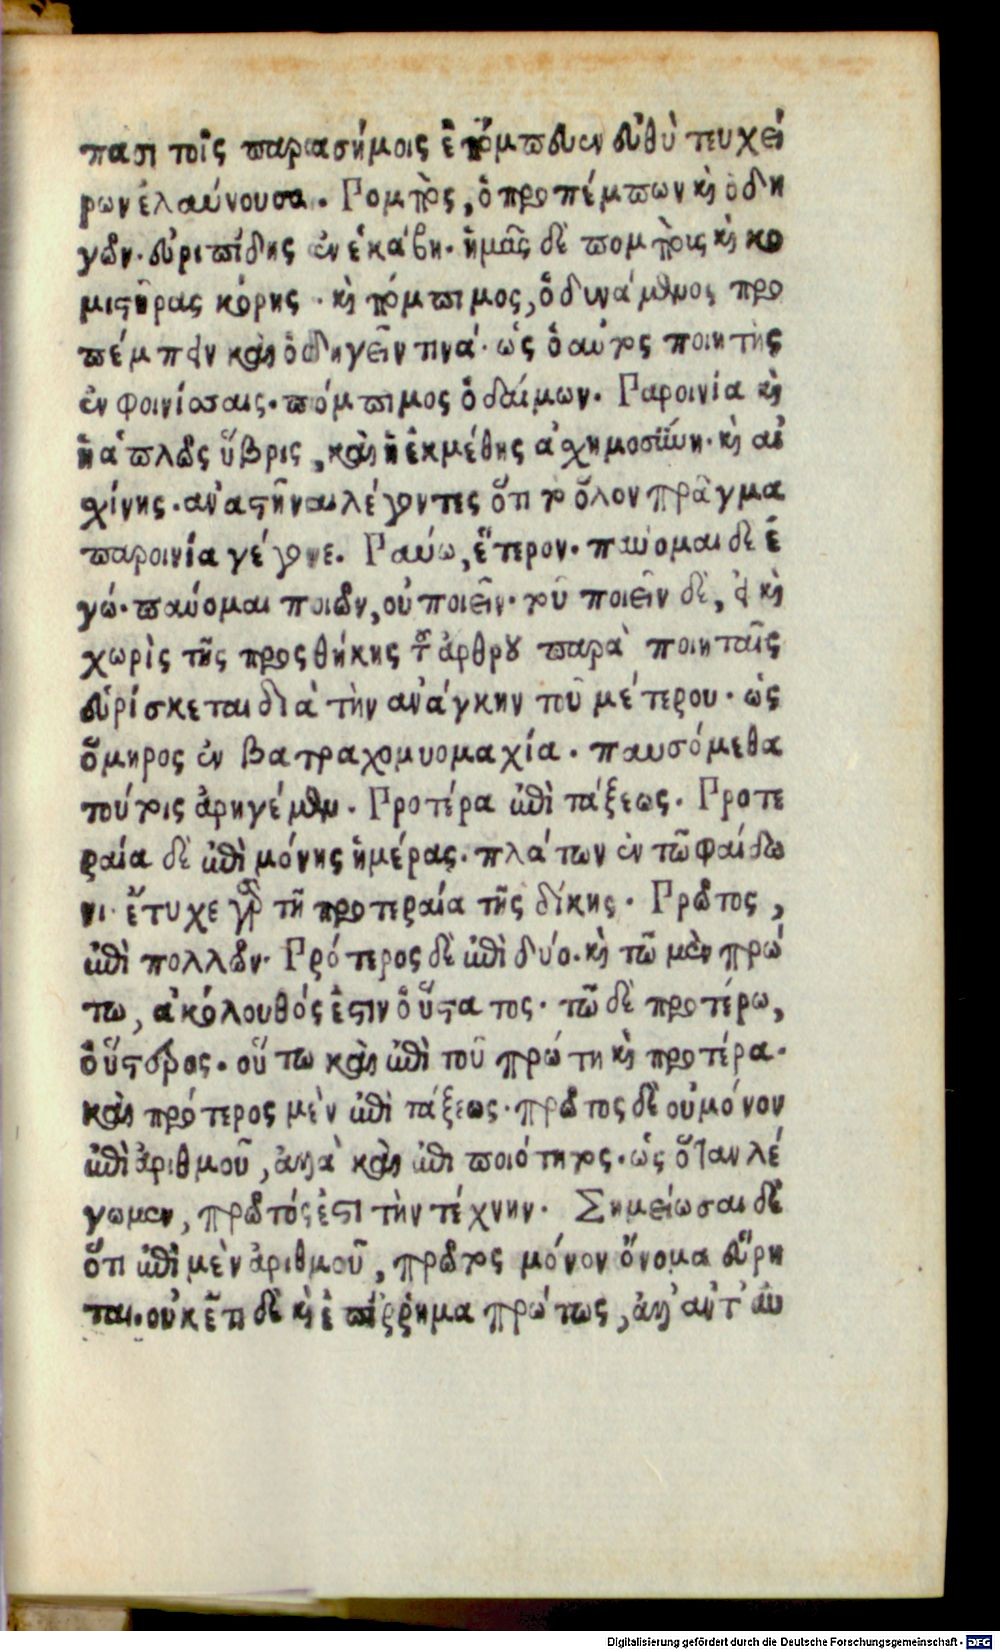 πασι τοῖς παρασήμοις ἐπόμπευεν εὐθὺ τευχεί
ρων ἐλαύνουσα. Πομπὸς, ὁ προπέμπων κὶ ὁδη
γῶν. εὐριπίδης ἐν ἑκάβη. ἡμᾶς δὲ πομποὺς κὶ κο
μιστῆρας κόρης. κὶ πόμπιμος, ὁ δυνάμενος προ
πέμπειν καὶ ὁδηγεῖν τινά. ὡς ὁ αὐτὸς ποιητὴς
ἐν φοινίσσαις. πόμπιμος ὁ δαίμων. Παροινία κὶ
ἡ ἁπλῶς ὕβρις, καὶ ἡ ἐκ μέθης ἀσχημοσύνη. κὶ αἰ
σχίνης. ἀναστῆναι λέγοντες ὅτι τὸ ὅλον πρᾶγμα
παροινία γέγονε. Παύω, ἕτερον. παύομαι δὲ ἐ
γώ. παύομαι ποιῶν, οὐ ποιεῖν. τοῦ ποιεῖν δὲ, εἰ κὶ
χωρὶς τῆς προσθήκης τοῦ ἄρθρου παρὰ ποιηταῖς
εὑρίσκεται διὰ τὴν ἀνάγκην τοῦ μέτερου. ὡς
ὅμηρος ἐν βατραχομυομαχία. παυσόμεθα
τούτοις ἀρηγέμεν. Προτέρα ἐπὶ τάξεως. Προτε
ραία δὲ ἐπὶ μόνης ἡμέρας. πλάτων ἐν τῶ φαίδω
νι. ἔτυχε γὰρ τῆ προτεραία τῆς δίκης. Πρῶτος,
ἐπὶ πολλῶν. Πρότερος δὲ ἐπὶ δύο. κὶ τῶ μὲν πρώ
τω, ἀκόλουθός ἐστιν ὁ ὕστατος. τῶ δὲ προτέρω,
ὁ ὕστερος. οὕτω καὶ ἐπὶ τοῦ πρώτη κὶ προτέρα.
καὶ πρότερος μὲν ἐπὶ τάξεως. πρῶτος δὲ οὐ μόνον
ἐπὶ ἀριθμοῦ, ἀλλὰ καὶ ἐπὶ ποιότητος. ὡς ὅταν λέ
γωμεν, πρῶτός ἐστι τὴν τέχνην. Σημείωσαι δὲ
ὅτι ἐπὶ μὲν ἀριθμοῦ, πρῶτος μόνον ὄνομα εὕρη
ται. οὐκ ἔτι δὲ κὶ ἐπίρρημα πρώτως, ἀλλ' ἀντ' αὐ
Digitalisierung gefördert durch die Deutsche Forschungsgemeinschaft - DFG